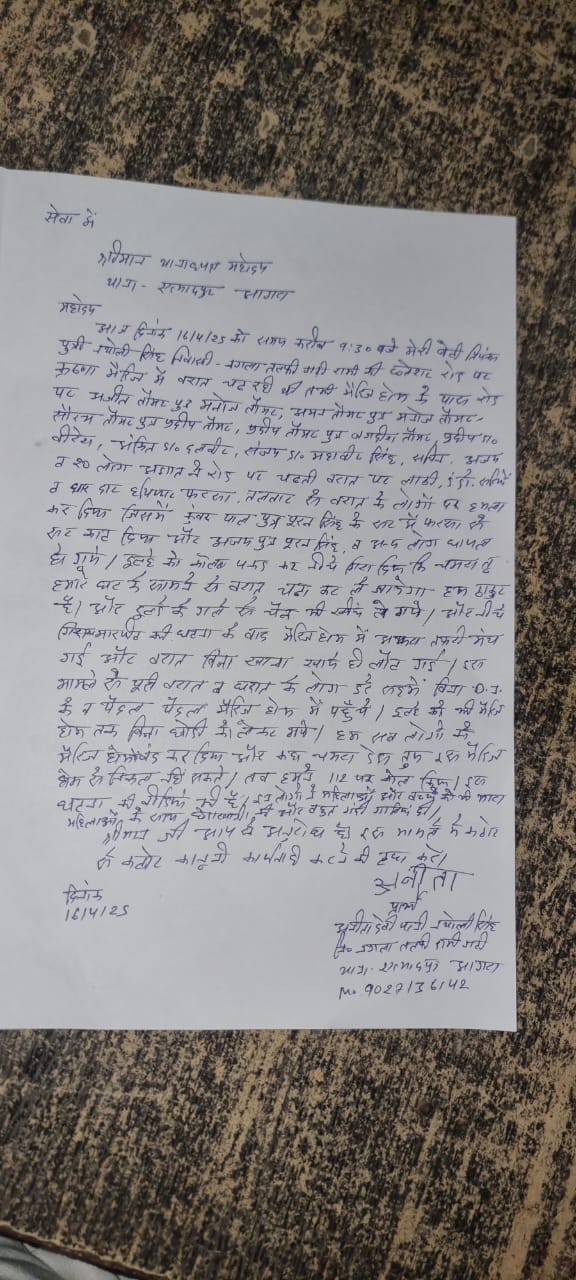 सेवा में
श्रीमान थानाध्यक्ष महोदय
थाना - एत्मादपुर आगरा
महोदय
आज दिनांक 16/4/25 को समय करीब 9:30 बजे मेरी बेटी
पुत्री सिंह निवासी - नगला तल्फी रोड पर
कृष्णा मैरिज में बरात चढ रही थी तभी मैरिज होम के पास रोड
पर तोमर पुत्र मनोज तोमर, तोमर पुत्र मनोज तोमर
तोमर पुत्र प्रदीप तोमर, प्रदीप तोमर पुत्र जगदीश तोमर, प्रदीप S/o
वीरेश, अंकित S/o दलवीर, संजय S/o महावीर सिंह, सचिन, अजय
व 20 लोग अज्ञात ने रोड पर चढती बरात पर लाठी, डंडो, सरियों
व धार दार हथियार फरसा, तलवार से बरात के लोगों पर हमला
कर दिया जिसमें पुत्र पूरन सिंह के सर में फरसा से
सर काट दिया और अजय पुत्र पूरन सिंह, व अन्य लोग घायल
हो गये। दूल्हे को कॉलर पकड कर नीचे गिरा दिया कि चमरा तू
हमारे घर के सामने से बरात चढा कर ले जायेगा हम ठाकुर
है। और दूल्हे के गले से चैन भी खींच ले गये। और नीचे
मारपीट की घटना के बाद मैरिज होम में अफरा तफरी मच
गई और बरात बिना खाना खाये ही लौट गई। इस
मामले से पूरी बरात व घरात के लोग डरे सहमें बिना D.J.
के व पैदल पैदल मैरिज होम में पहुँचे। दूल्हे को भी मैरिज
होम तक बिना घोडी के लेकर गये। हम सब लोगो को
मैरिज होम में बंद कर दिया और कहा चमरा तुम इस मैरिज
होम से निकल नहीं सकते। तब हमने 112 पर कॉल किया। इस
घटना की वीडियो भी है। इन लोगो ने महिलाओं और बच्चों को भी मारा
महिलाओं के साथ की और बहुत गंदी गालियां दी।
श्रीमान जी आप से अनुरोध है इस मामले में कठोर
से कठोर कानूनी कार्यवाही करने की कृपा करें।
अनीता
दिनांक
16/4/25
प्रार्थी
अनीता देवी पत्नी सिंह
नि० नगला तल्फी
थाना- एत्मादपुर आगरा
Mo. 9027136142